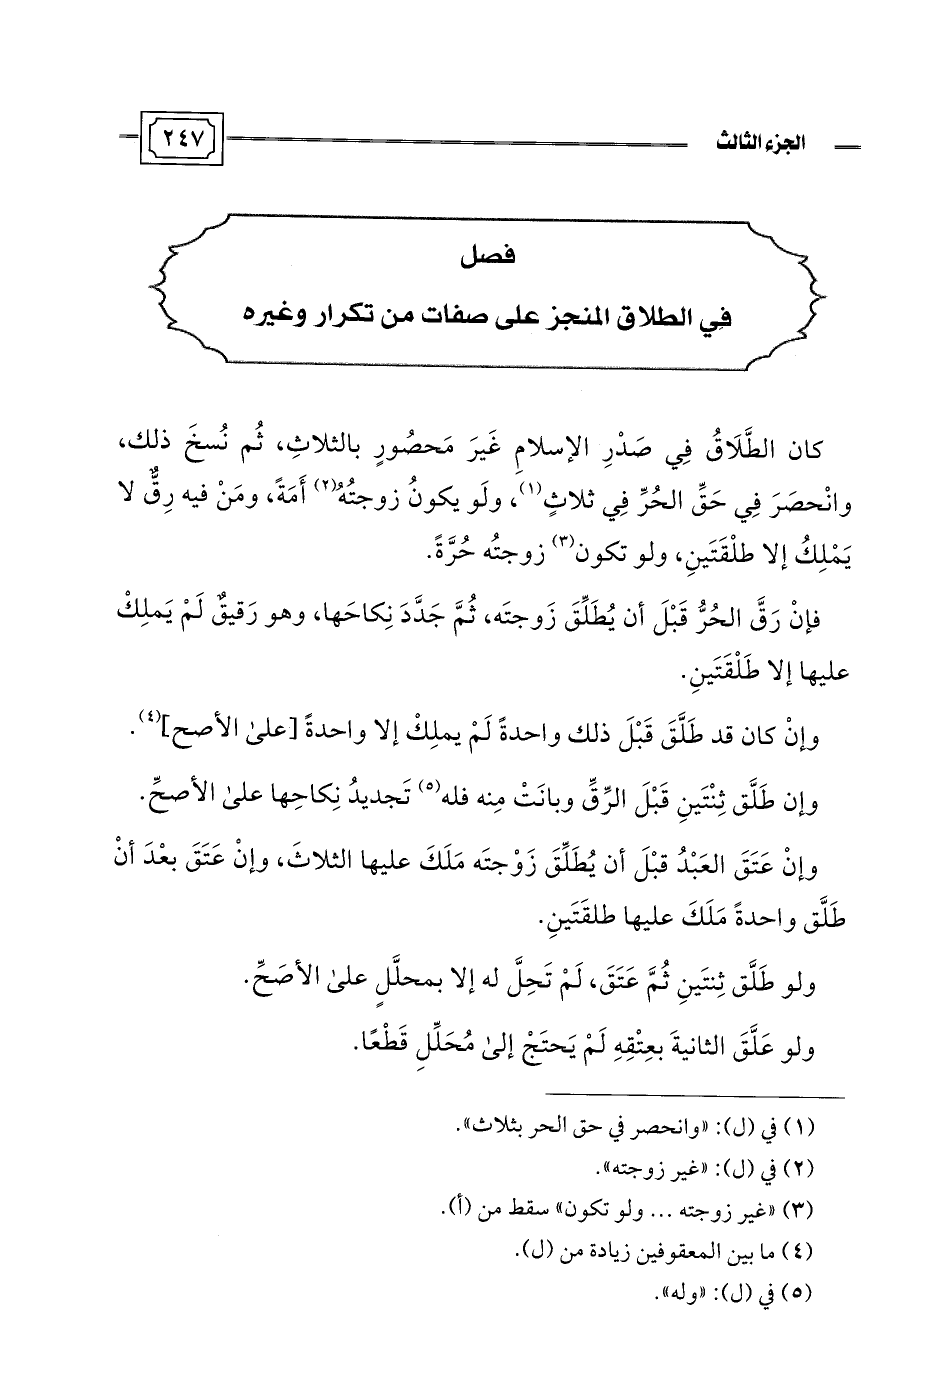 الجزء الثالث ٢٤٧
فصل
في الطلاق المنجز على صفات من تكرار وغيره
كان الطَّلَاقُ فِي صَدْرِ الإسلامِ غَيرَ مَحصُورٍ بالثلاثِ، ثُم نُسخَ ذلك،
وانْحصَرَ فِي حَقِّ الحُرِّ فِي ثلاثٍ(١)، ولَو يكونُ زوجتُهُ(٢) أمَةً، ومَنْ فيه رِقٌّ لا
يَمْلِكُ إلا طلْقَتَينِ، ولو تكون(٣) زوجتُه حُرَّةً.
فإنْ رَقَّ الحُرُّ قَبْلَ أن يُطَلِّقَ زَوجتَه، ثُمَّ جَدَّدَ نِكاحَها، وهو رَقيقٌ لَمْ يَملِكْ
عليها إلا طَلْقَتَينِ.
وإنْ كان قد طَلَّقَ قَبْلَ ذلك واحدةً لَمْ يملِكْ إلا واحدةً [علىٰ الأصح](٤).
وإن طَلَّق ثِنْتَينِ قَبْلَ الرِّقِّ وبانَتْ مِنه فله(٥) تَجديدُ نِكاحِها علىٰ الأصحِّ.
وإنْ عَتَقَ العَبْدُ قبْلَ أن يُطَلِّقَ زَوْجتَه مَلَكَ عليها الثلاثَ، وإنْ عَتَقَ بعْدَ أنْ
طَلَّق واحدةً مَلَكَ عليها طلقَتَينِ.
ولو طَلَّق ثِنتَينِ ثُمَّ عَتَقَ، لَمْ تَحِلَّ له إلا بمحلَّلٍ علىٰ الأصَحِّ.
ولو عَلَّقَ الثانيةَ بعِتْقِهِ لَمْ يَحتَجْ إلىٰ مُحَلِّلِ قَطْعًا.
(١) في (ل): «وانحصر في حق الحر بثلاث».
(٢) في (ل): «غير زوجته».
(٣) «غير زوجته ... ولو تكون» سقط من (أ).
(٤) ما بين المعقوفين زيادة من (ل).
(٥) في (ل): «وله».